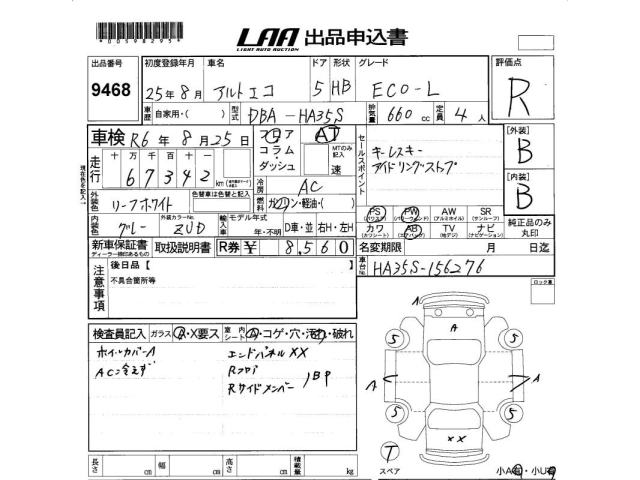 *00598295*
LAA 出品申込書
LIGHT AUTO AUCTION
出品番号 初度登録年月 車名 ドア 形状 グレード 評価点
9468 25年8月 アルトエコ 5 HB ECO-L R
車歴 自家用・( ) 型式 DBA-HA35S 排気量 660 cc 定員 4人
車検 R6年8月25日 フロア AT セールスポイント [外装]
コラム・ MTのみ記入 キーレスキー B
ダッシュ 速 アイドリングストップ
現在をを記入
走行 十万千百十 km
67342
冷房 AC [内装]
外装色 リーフホワイト 色替車は色替と記入 燃料 ガソリン・軽油・( ) B
PS (パワステ) PW (パワーウィンド) AW (アルミホイル) SR (サンルーフ) 純正品のみ丸印
内装色 グレー 外装カラーNo. ZUD 輸入車 モデル年式 年・不明 D車・並 右H・左H カワ (カワシート) AB (エアバック) TV (地デジ) ナビ (ナビゲーション)
新車保証書 取扱説明書 R券 ¥ 8,560 名変期限 月 日迄
ディーラー捺印あるもの
車台No. HA35S-156276
注意事項 後日品【 】 ロック裏
不具合箇所等
検査員記入 ガラス A・X要ス 室内シート A・コゲ・穴・汚れ・破れ
ホイルカバーA エンドパネルXX
ACン冷えず Rフロア
Rサイドメンバー
A
A
5 5
A A
5 5
XX
T
スペア 小A有・小U有
長さ cm 幅 cm 高さ cm 積載量 kg